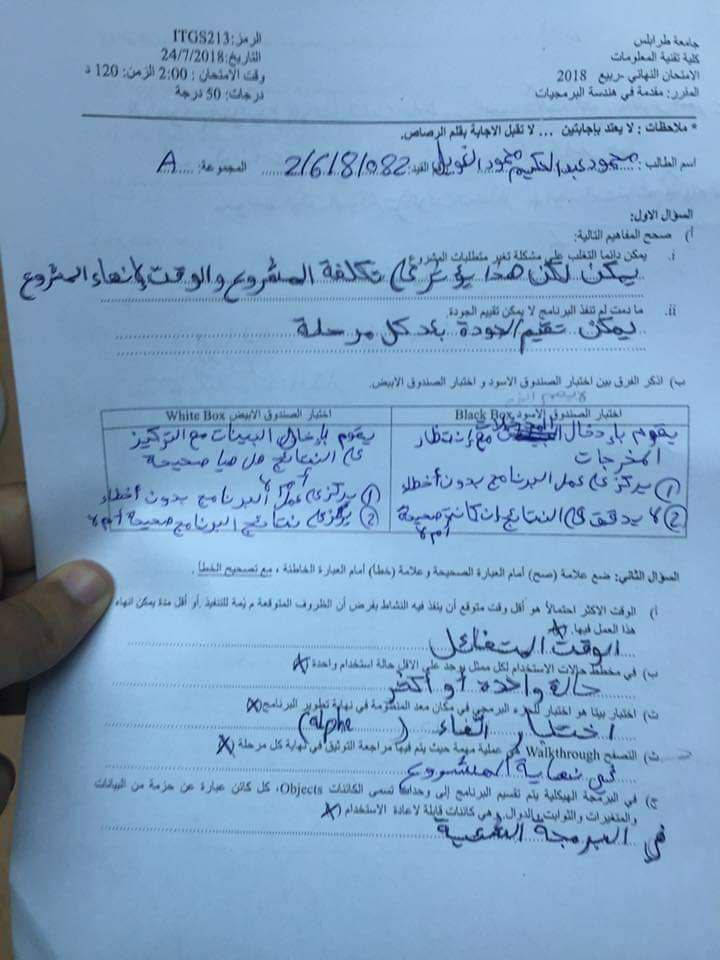 جامعة طرابلس
كلية تقنية المعلومات
الامتحان النهائي -ربيع 2018
المقرر: مقدمة في هندسة البرمجيات
الرمز: ITGS213
التاريخ: 24/7/2018
وقت الامتحان : 2:00 الزمن: 120 د
درجات: 50 درجة
* ملاحظات : لا يعتد بإجابتين ... لا تقبل الاجابة بقلم الرصاص.
اسم الطالب : محمود عبد الحكيم محمود الغويل القيد: 2/6/8/082 المجموعة: A
السؤال الاول:
أ) صحح المفاهيم التالية:
i. يمكن دائما التغلب على مشكلة تغير متطلبات المشروع
يمكن لكن هذا يؤثر على تكلفة المشروع والوقت لانهاء المشروع
ii. ما دمت لم تنفذ البرنامج لا يمكن تقييم الجودة.
يمكن تقيم الجودة بعد كل مرحلة
ب) اذكر الفرق بين اختبار الصندوق الاسود و اختبار الصندوق الابيض.
اختبار الصندوق الاسود Black Box
يقوم بإدخال مع إنتظار
المخرجات
1) يركز على عمل البرنامج بدون أخطاء
2) لا يدقق على النتائج إن كانت صحيحة
أم لا
اختبار الصندوق الابيض White Box
يقوم بإدخال البينات مع التركيز
على النتائج هل هيا صحيحة
أم لا
1) يركز على عمل البرنامج بدون أخطاء
2) يركز على نتائج البرنامج صحيحة أم لا
السؤال الثاني: ضع علامة (صح) أمام العبارة الصحيحة وعلامة (خطأ) أمام العبارة الخاطئة ، مع تصحيح الخطأ .
أ) الوقت الاكثر احتمالاً هو أقل وقت متوقع أن ينفذ فيه النشاط بفرض أن الظروف المتوقعة للتنفيذ أو أقل مدة يمكن انهاء
هذا العمل فيها. (X
الوقت المتفائل
ب) في مخطط حالات الاستخدام لكل ممثل يوجد على الاقل حالة استخدام واحدة (X
حالة واحدة أو أكثر
ت) اختبار بيتا هو اختبار للجزء البرمجي في مكان معد المنظومة في نهاية تطوير البرنامج (X
اختبار الفاء (Alpha)
ث) التصفح Walkthrough هو عملية مهمة حيث يتم فيها مراجعة التوثيق في نهاية كل مرحلة (X
في نهاية المشروع
ج) في البرمجة الهيكلية يتم تقسيم البرنامج إلى وحدات تسمى الكائنات Objects، كل كائن عبارة عن حزمة من البيانات
والمتغيرات والثوابت والدوال وهي كائنات قابلة لاعادة الاستخدام (X
في البرمجة الشيئية